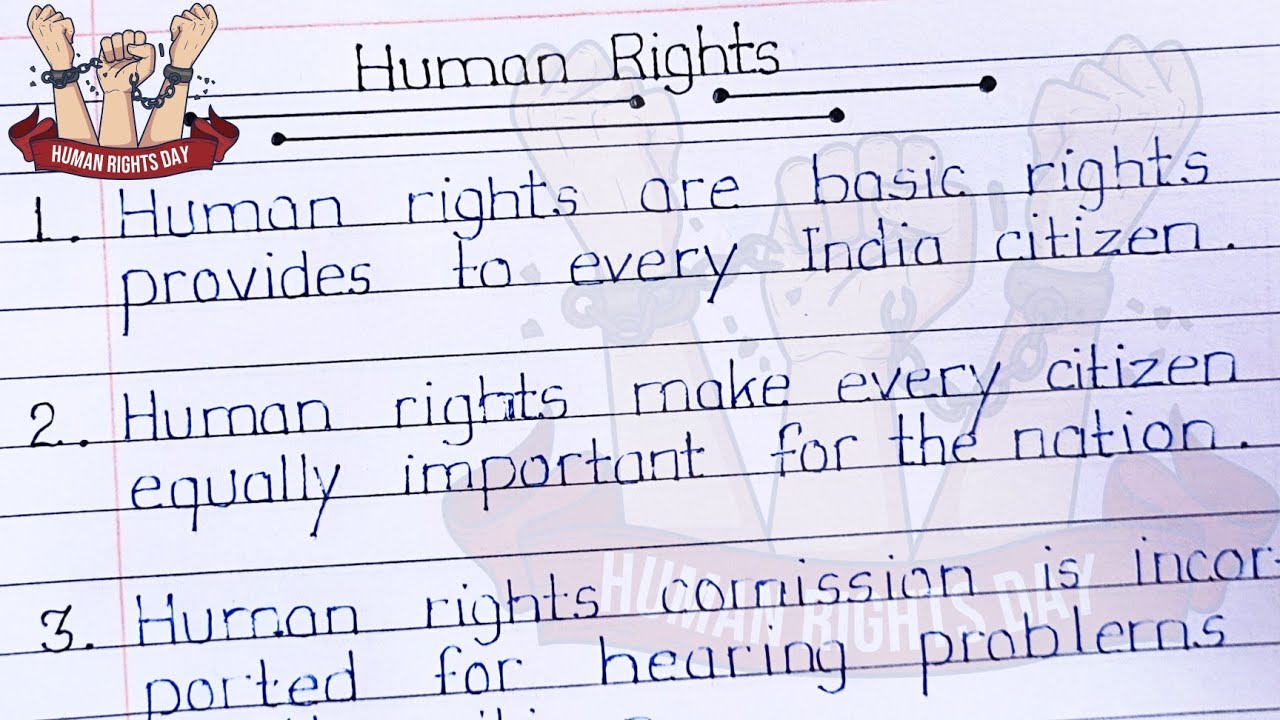 Human Rights
HUMAN RIGHTS DAY
1. Human rights are basic rights
provides to every India citizen.
2. Human rights make every citizen
equally important for the nation.
3. Human rights comission is incor-
ported for hearing problems
HUMAN RIGHTS DAY